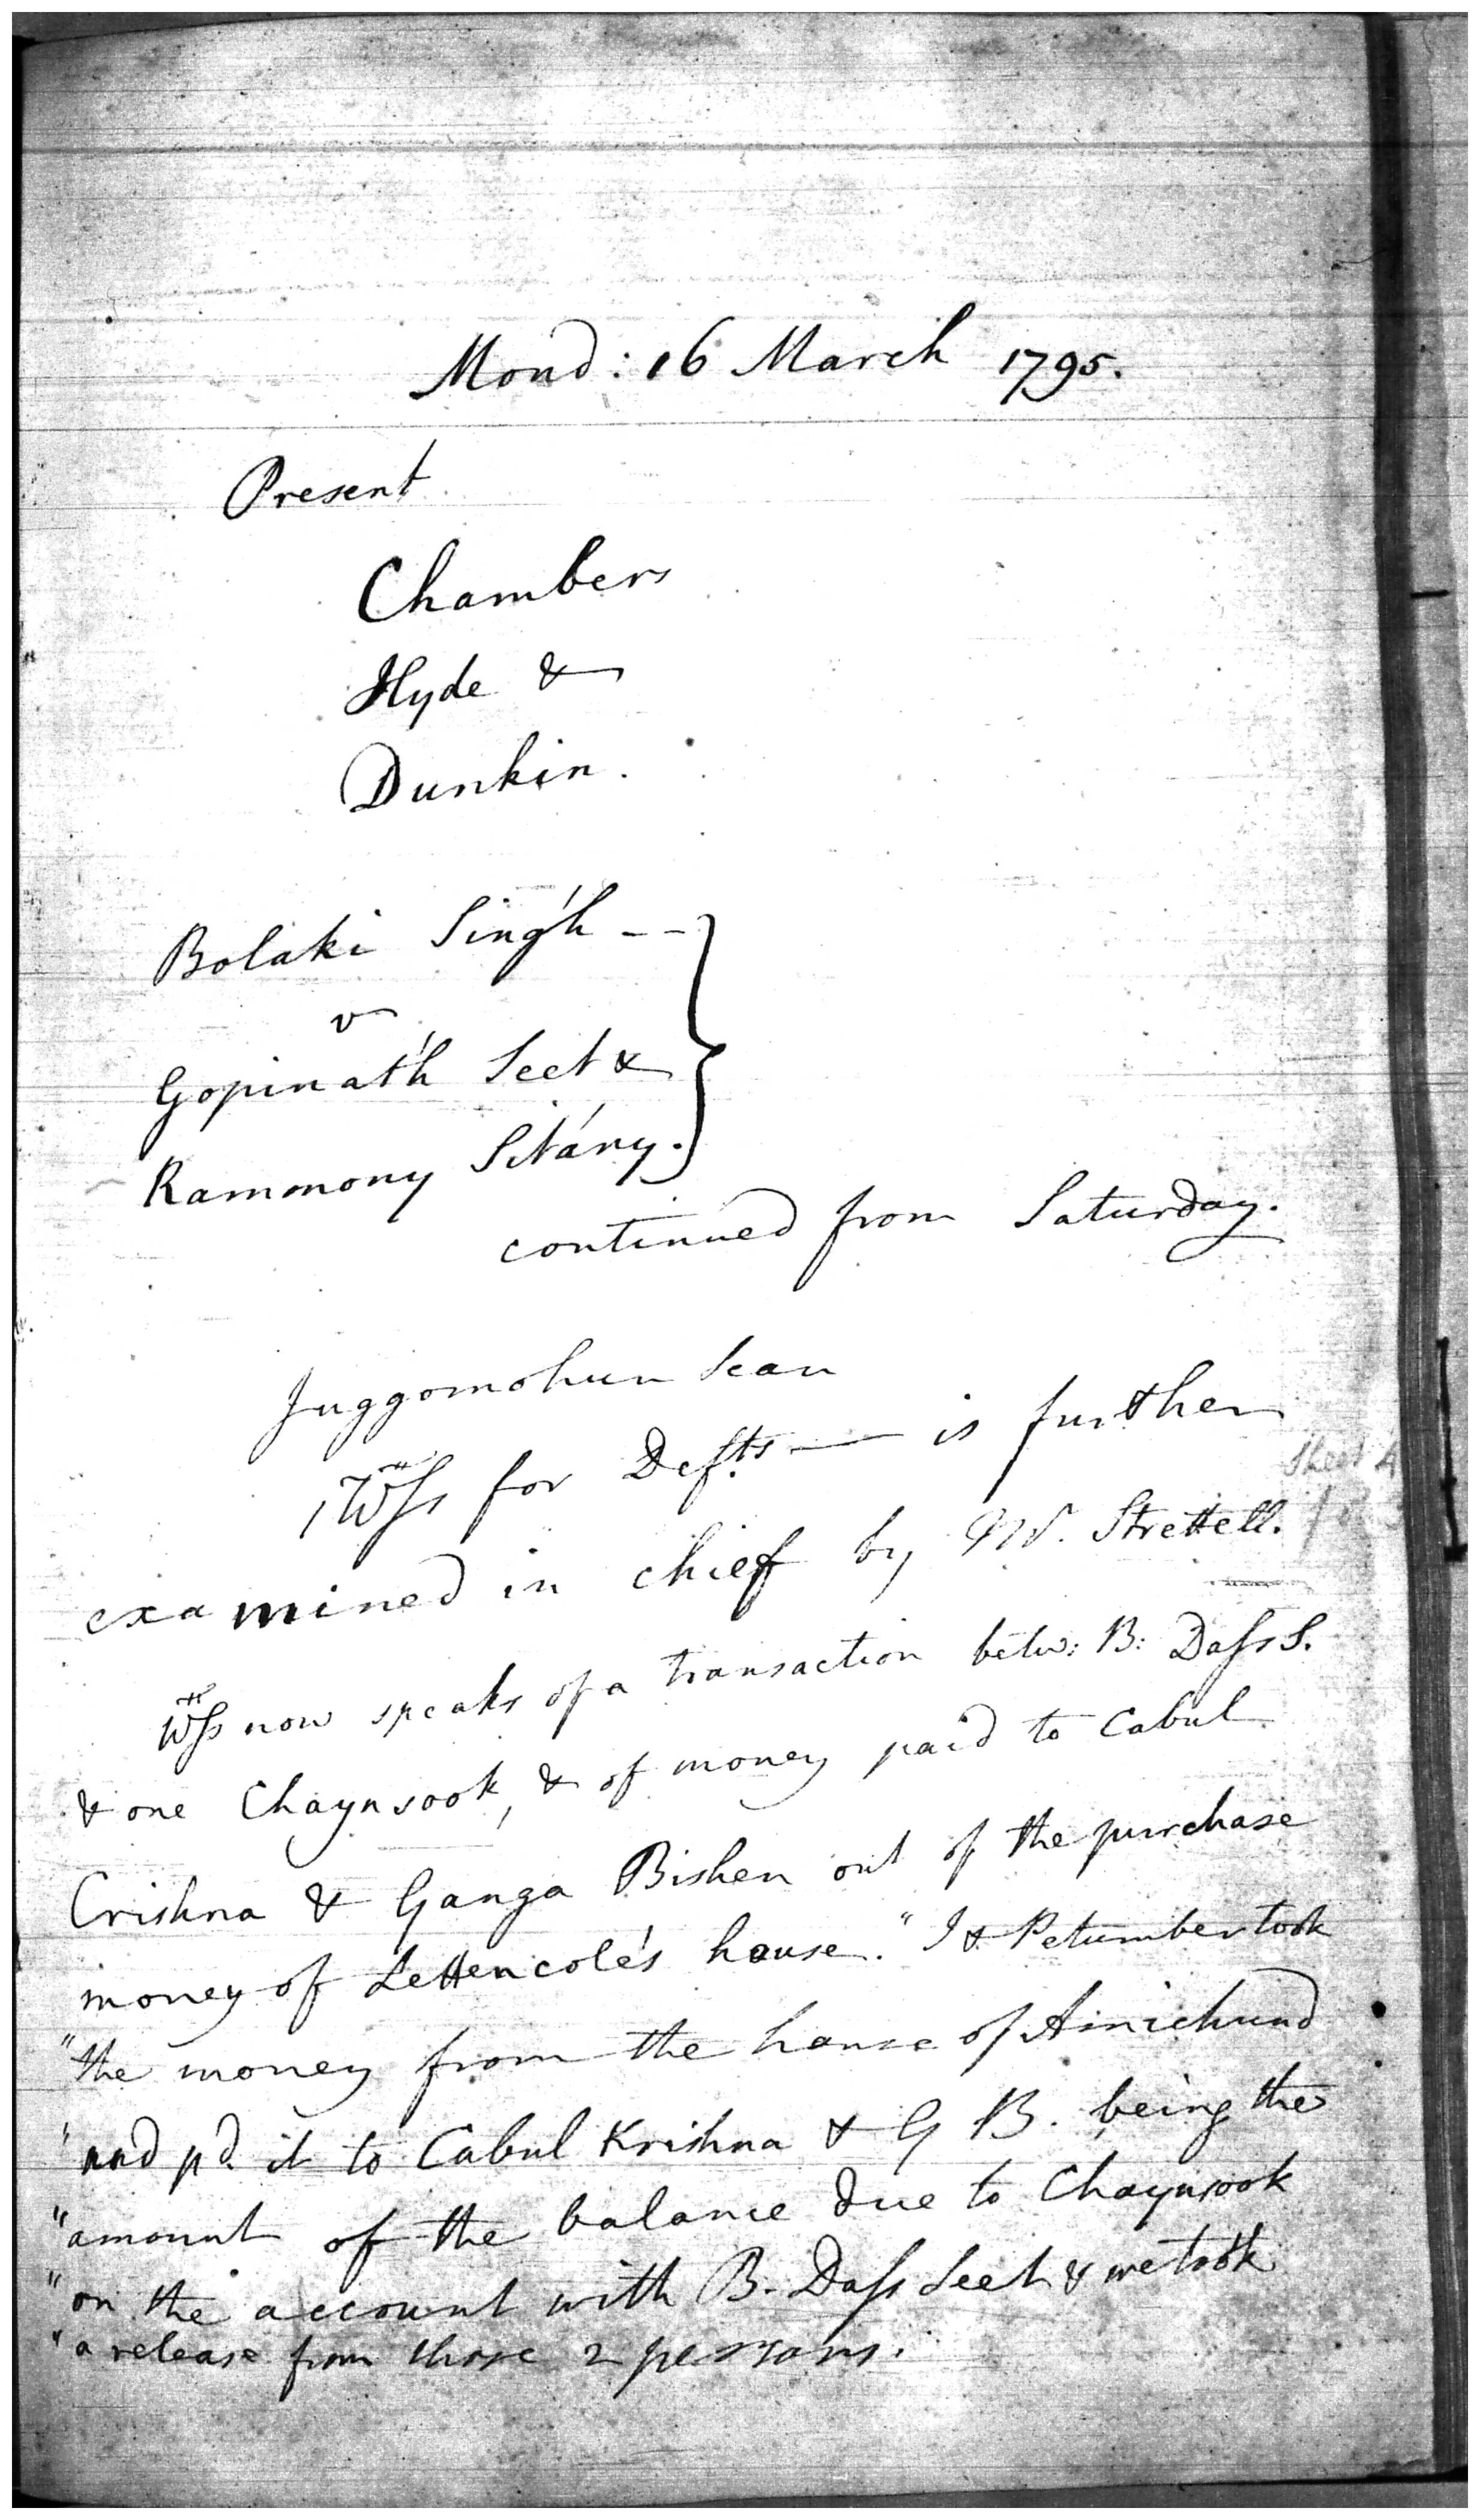 Mond: 16 March 1795.
Present
Chambers
Hyde &
Dunkin.
Bolaki Sing'h --
v
Gopinat'h Seet &
Rammony Sitány.
continued from Saturday.
Juggomohun Sean
1 Wss for Defts — is further
examined in chief by Mr. Strettell.
Wss now speaks of a transaction betw: B: Dass S.
& one Chaynsook, & of money paid to Cabul
Crishna & Ganga Bishen out of the purchase
money of Lettencole's house. "I & Petumber took
"the money from the house of Amichund
"and pd. it to Cabul Krishna & G B. being the
"amount of the balance due to Chaynsook
"on the account with B. Dass Seet & we took
"a release from those 2 persons.